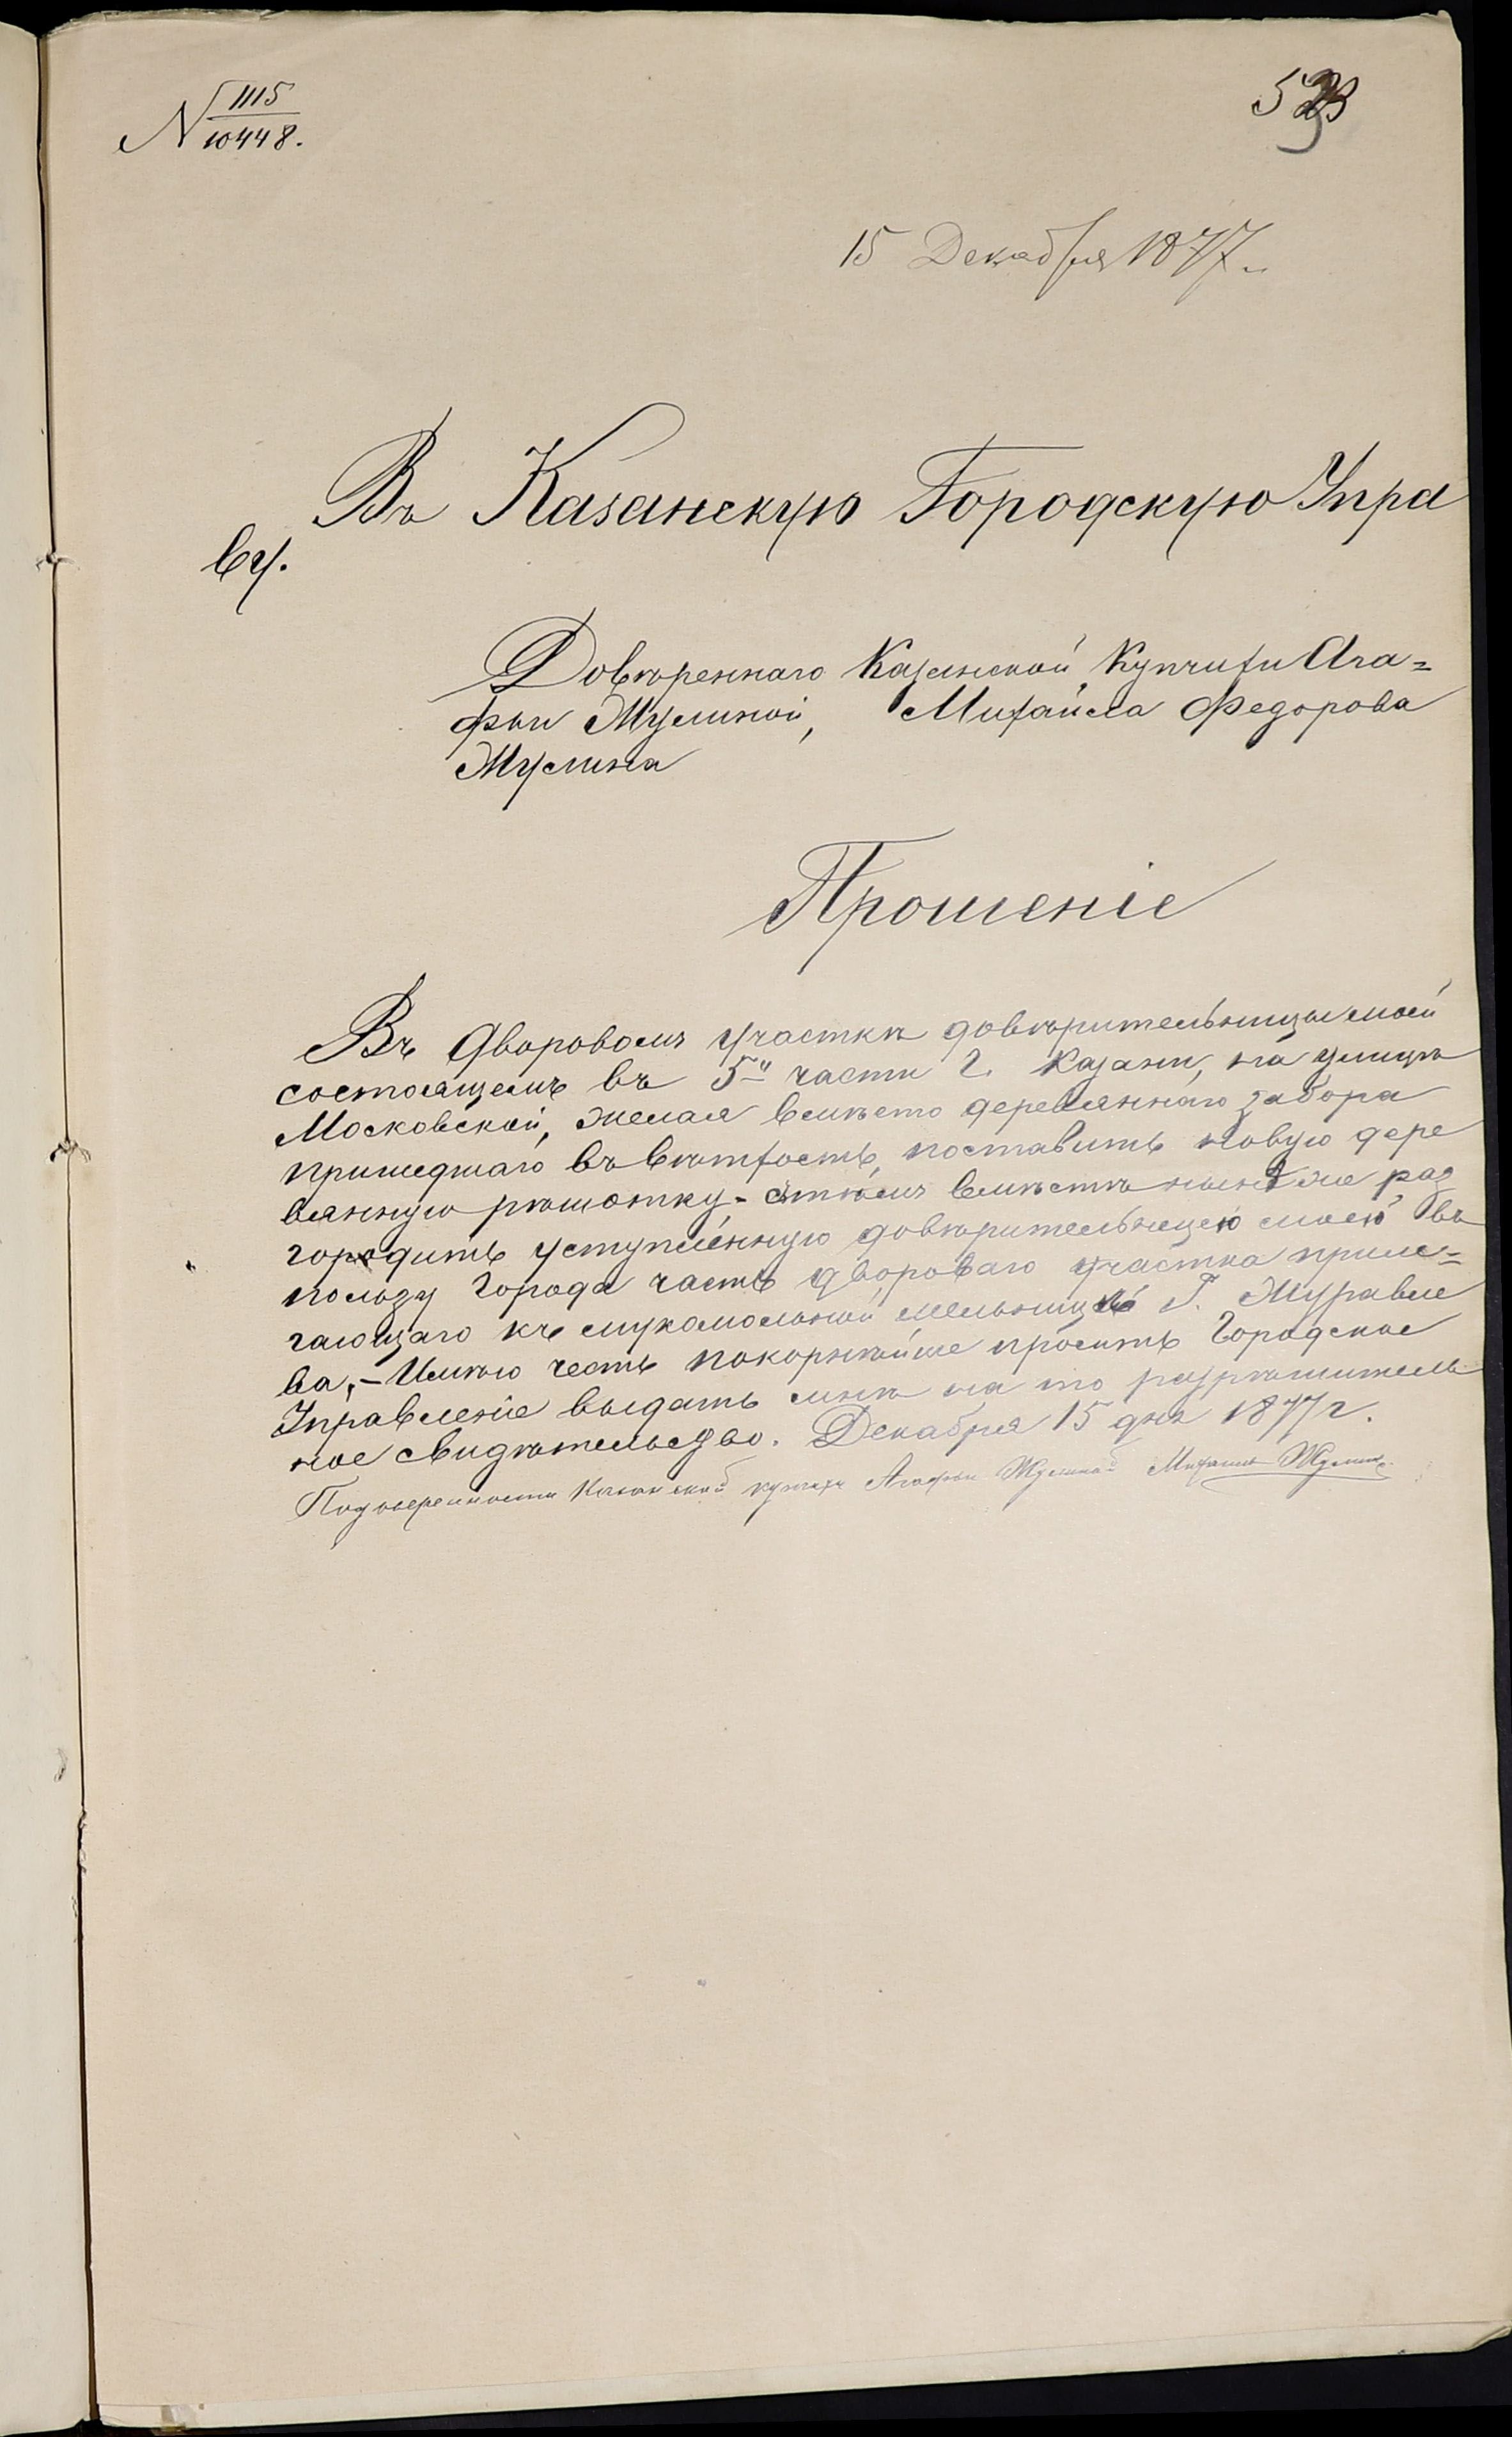 N 1115
10448.
53
15 Декабря 1877 г.
Въ Казанскую Городскую Упра
ву.
Довѣреннаго Казанской Купчихи Ага=
фьи Жулиной, Михайла Федорова
Жулина
Прошеніе
Въ Дворовомъ участкѣ довѣрительницы моей
состоящемъ въ 5й части г. Казани, на улицѣ
Московской, желая вмѣсто деревяннаго забора
пришедшаго въ ветхость, поставить новую дере
вянную рѣшотку - стѣмъ вмѣстѣ нынѣ же раз
городить уступленную довѣрительницею моею въ
пользу Города часть двороваго участка приле=
гающаго къ мукомольной мельницѣ Г. Журавле
ва, - Имѣю честь покорнѣйше просить Городское
Управленіе выдать мнѣ на то разрѣшитель
ное свидѣтельство. Декабря 15 дня 1877 г.
По доверенности Казанской купчихи Агафьи Жулиной Михаилъ Жулинъ